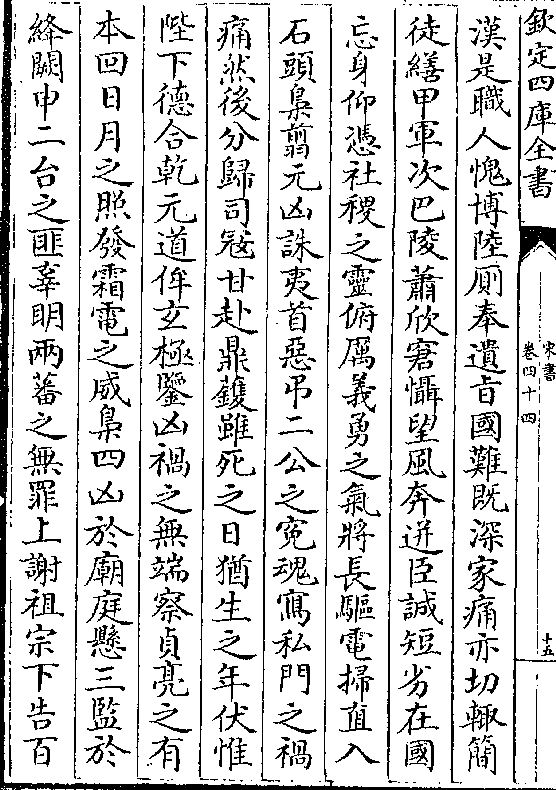 欽定四庫全書
宋書
卷四十四
十五
漢是職人愧博陸厠奉遺旨國難既深家痛亦切輙簡
徒繕甲軍次巴陵蕭欣窘懾望風奔迸臣誠短劣在國
忘身仰憑社稷之靈俯厲義勇之氣將長驅電掃直入
石頭梟翦元凶誅夷首惡弔二公之寃魂寫私門之禍
痛然後分歸司寇甘赴鼎鑊雖死之日猶生之年伏惟
陛下德合乾元道侔玄極鑒凶禍之無端察貞亮之有
本回日月之照發霜電之威梟四凶於廟庭懸三監於
絳闕申二台之匪辜明兩蕃之無罪上謝祖宗下告百